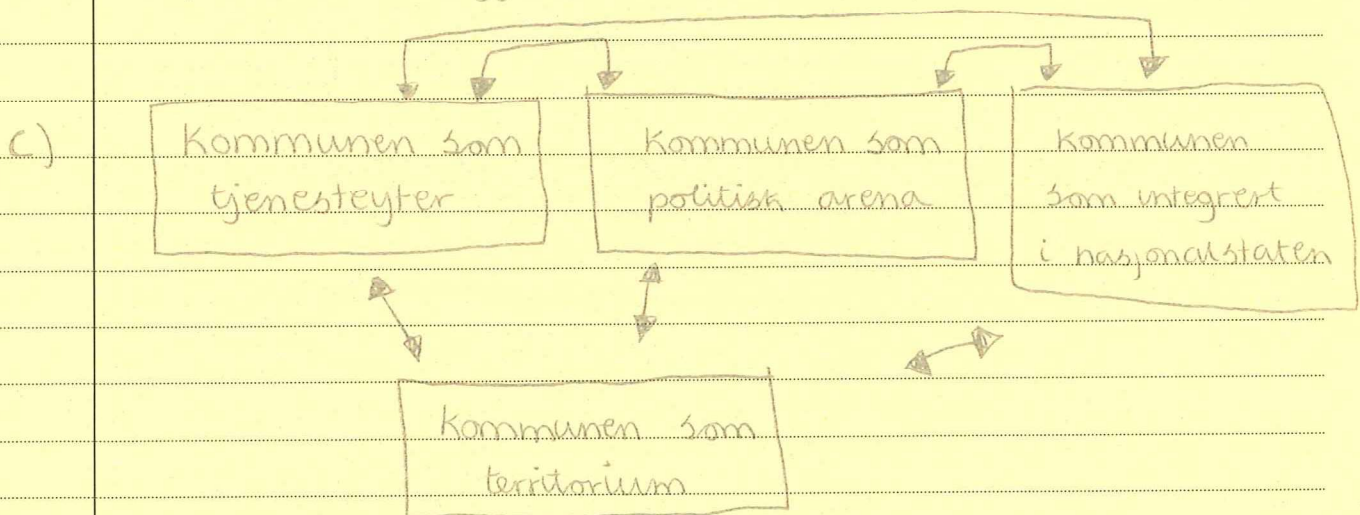 c)
Kommunen som
tjenesteyter
Kommunen som
politisk arena
Kommunen
som integrert
i nasjonalstaten
Kommunen som
territorium